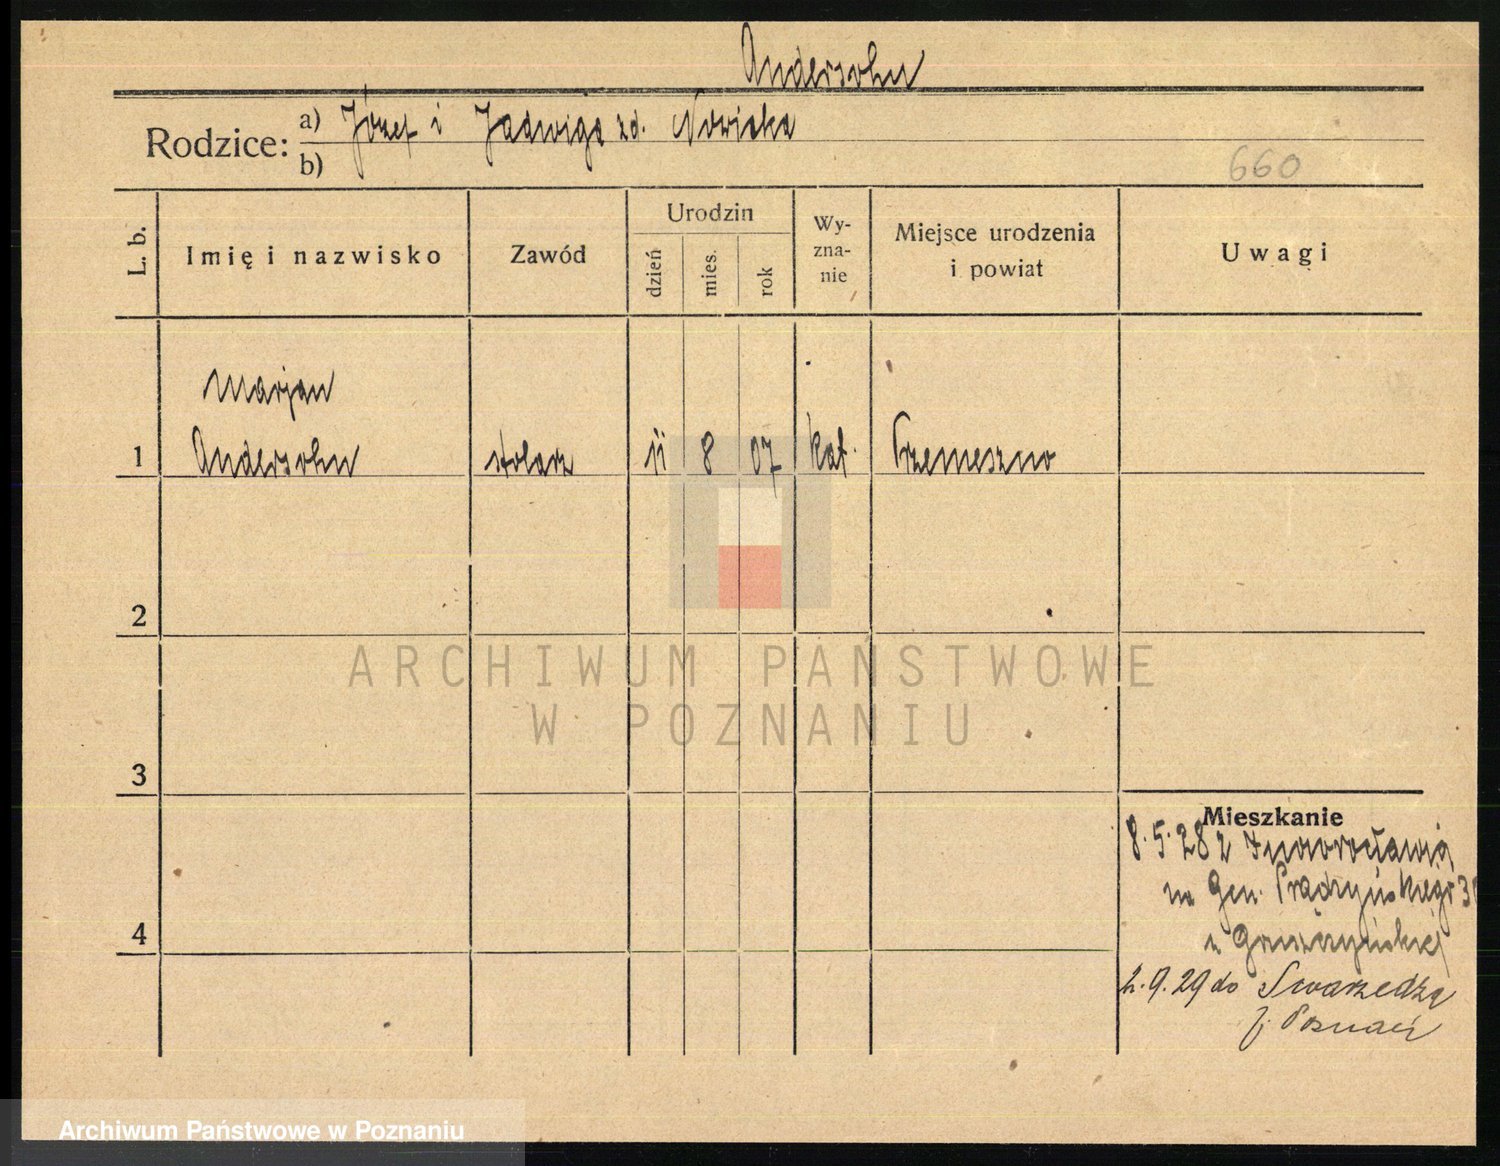 Andersohn
Rodzice: a) Józef i Jadwiga zd. Nowicka
b)
660
L. b.
Imię i nazwisko
Zawód
Urodzin
dzień
mies.
rok
Wy-
zna-
nie
Miejsce urodzenia
i powiat
Uwagi
Marjan
1 Andersohn stolarz 11 8 07 kat. Trzemeszno
2
ARCHIWUM PAŃSTWOWE
W POZNANIU
3
Mieszkanie
8.5.28 z Inowrocławia
na Gen. Prądzyńskiego
4
2.9.29 do Swarzędza
p. Poznań
Archiwum Państwowe w Poznaniu